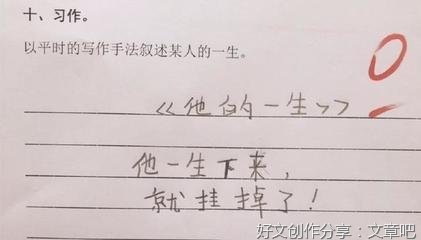 十、习作。
以平时的写作手法叙述某人的一生。
《他的一生》
0
他一生下来，
就挂掉了！
好文创作分享：文章吧